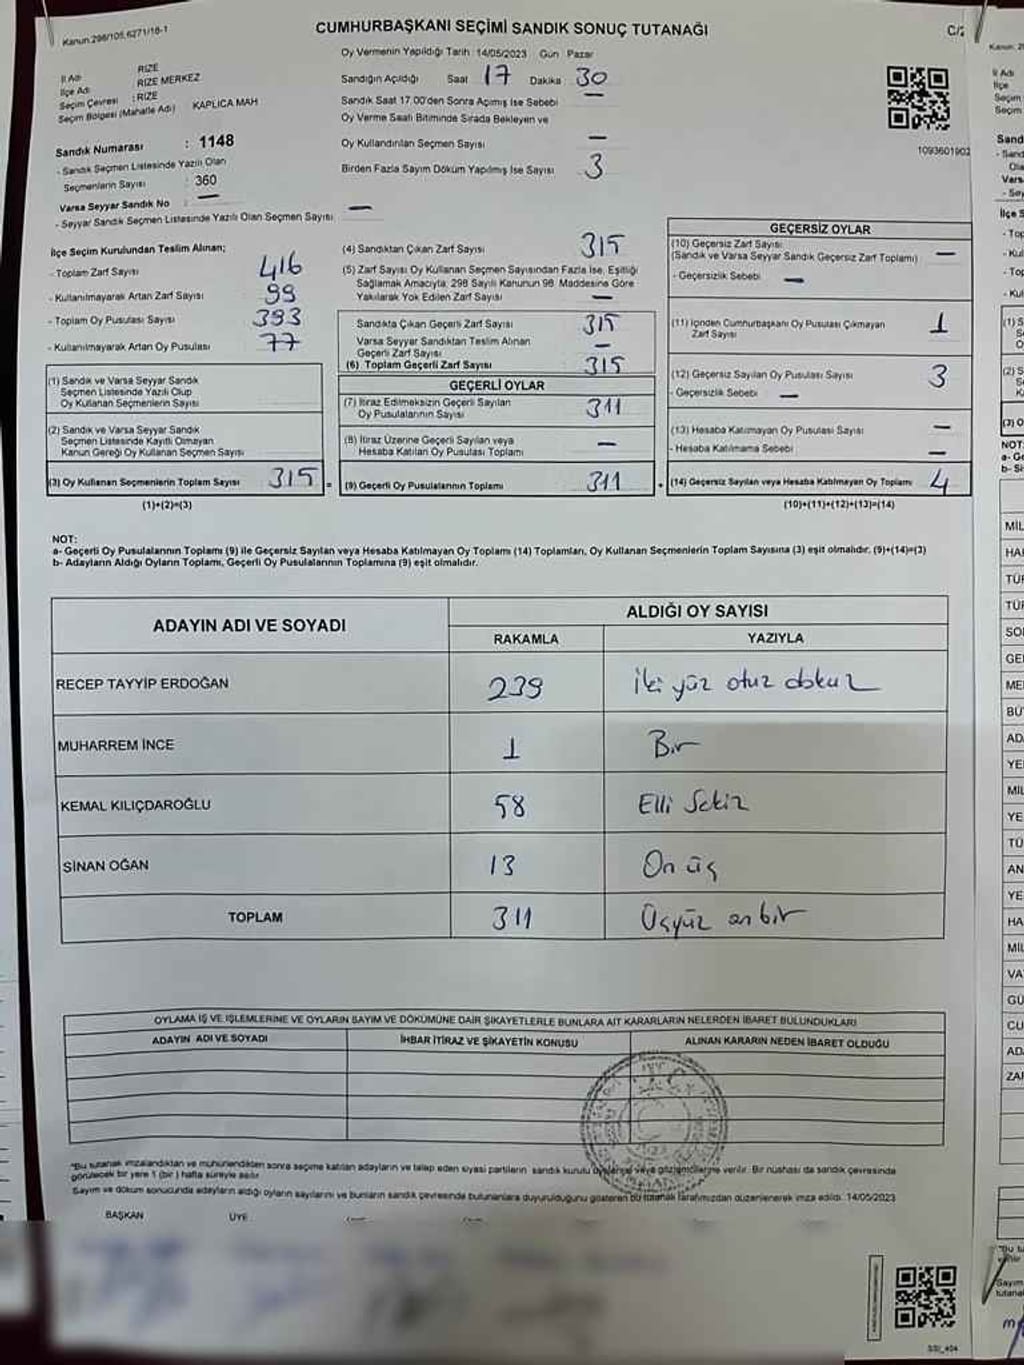 Kanun:298/105,6271/18-1
CUMHURBAŞKANI SEÇİMİ SANDIK SONUÇ TUTANAĞI
C/2
Oy Vermenin Yapıldığı Tarih 14/05/2023 Gün Pazar
İl Adı RİZE
İlçe Adı RİZE MERKEZ
Seçim Çevresi : RİZE
Seçim Bölgesi (Mahalle Adı) KAPLICA MAH
Sandığın Açıldığı Saat 17 Dakika 30
Sandık Saat 17.00'den Sonra Açılmış İse Sebebi —
Oy Verme Saati Bitiminde Sırada Bekleyen ve
Oy Kullandırılan Seçmen Sayısı —
Birden Fazla Sayım Döküm Yapılmış İse Sayısı 3
1093601902
Sandık Numarası : 1148
- Sandık Seçmen Listesinde Yazılı Olan
Seçmenlerin Sayısı : 360
Varsa Seyyar Sandık No : —
- Seyyar Sandık Seçmen Listesinde Yazılı Olan Seçmen Sayısı —
İlçe Seçim Kurulundan Teslim Alınan;
- Toplam Zarf Sayısı 416
- Kullanılmayarak Artan Zarf Sayısı 99
- Toplam Oy Pusulası Sayısı 393
- Kullanılmayarak Artan Oy Pusulası 77
(1) Sandık ve Varsa Seyyar Sandık
Seçmen Listesinde Yazılı Olup
Oy Kullanan Seçmenlerin Sayısı
(2) Sandık ve Varsa Seyyar Sandık
Seçmen Listesinde Kayıtlı Olmayan
Kanun Gereği Oy Kullanan Seçmen Sayısı
(3) Oy Kullanan Seçmenlerin Toplam Sayısı 315 =
(1)+(2)=(3)
(4) Sandıktan Çıkan Zarf Sayısı 315
(5) Zarf Sayısı Oy Kullanan Seçmen Sayısından Fazla İse, Eşitliği
Sağlamak Amacıyla; 298 Sayılı Kanunun 98. Maddesine Göre
Yakılarak Yok Edilen Zarf Sayısı —
Sandıkta Çıkan Geçerli Zarf Sayısı 315
Varsa Seyyar Sandıktan Teslim Alınan
Geçerli Zarf Sayısı —
(6) Toplam Geçerli Zarf Sayısı 315
GEÇERLİ OYLAR
(7) İtiraz Edilmeksizin Geçerli Sayılan
Oy Pusulalarının Sayısı 311
(8) İtiraz Üzerine Geçerli Sayılan veya
Hesaba Katılan Oy Pusulası Toplamı —
(9) Geçerli Oy Pusulalarının Toplamı 311 +
GEÇERSİZ OYLAR
(10) Geçersiz Zarf Sayısı
(Sandık ve Varsa Seyyar Sandık Geçersiz Zarf Toplamı) —
- Geçersizlik Sebebi —
(11) İçinden Cumhurbaşkanı Oy Pusulası Çıkmayan
Zarf Sayısı 1
(12) Geçersiz Sayılan Oy Pusulası Sayısı 3
- Geçersizlik Sebebi —
(13) Hesaba Katılmayan Oy Pusulası Sayısı —
- Hesaba Katılmama Sebebi —
(14) Geçersiz Sayılan veya Hesaba Katılmayan Oy Toplamı 4
(10)+(11)+(12)+(13)=(14)
NOT:
a- Geçerli Oy Pusulalarının Toplamı (9) ile Geçersiz Sayılan veya Hesaba Katılmayan Oy Toplamı (14) Toplamları, Oy Kullanan Seçmenlerin Toplam Sayısına (3) eşit olmalıdır. (9)+(14)=(3)
b- Adayların Aldığı Oyların Toplamı, Geçerli Oy Pusulalarının Toplamına (9) eşit olmalıdır.
ADAYIN ADI VE SOYADI
ALDIĞI OY SAYISI
RAKAMLA YAZIYLA
RECEP TAYYİP ERDOĞAN 239 İki yüz otuz dokuz
MUHARREM İNCE 1 Bir
KEMAL KILIÇDAROĞLU 58 Elli Sekiz
SİNAN OĞAN 13 On üç
TOPLAM 311 Üçyüz on bir
OYLAMA İŞ VE İŞLEMLERİNE VE OYLARIN SAYIM VE DÖKÜMÜNE DAİR ŞİKAYETLERLE BUNLARA AİT KARARLARIN NELERDEN İBARET BULUNDUKLARI
ADAYIN ADI VE SOYADI İHBAR İTİRAZ VE ŞİKAYETİN KONUSU ALINAN KARARIN NEDEN İBARET OLDUĞU
T.C.
*Bu tutanak imzalandıktan ve mühürlendikten sonra seçime katılan adayların ve talep eden siyasi partilerin sandık kurulu üyelerine veya gözlemcilerine verilir. Bir nüshası da sandık çevresinde
görülecek bir yere 1 (bir) hafta süreyle asılır.
Sayım ve döküm sonucunda adayların aldığı oyların sayılarını ve bunların sandık çevresinde bulunanlara duyurulduğunu gösteren bu tutanak tarafımızdan düzenlenerek imza edildi. 14/05/2023
BAŞKAN ÜYE